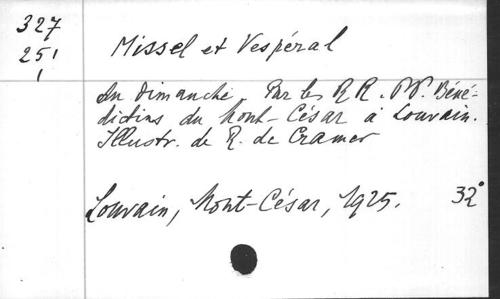 327
251
1
Missel et Vespéral
du Dimanche. Par les R R. PP. Béné-
dictins du Mont-César à Louvain.
Illustr. de R. de Cramer
Louvain, Mont-César, 1925. 32°